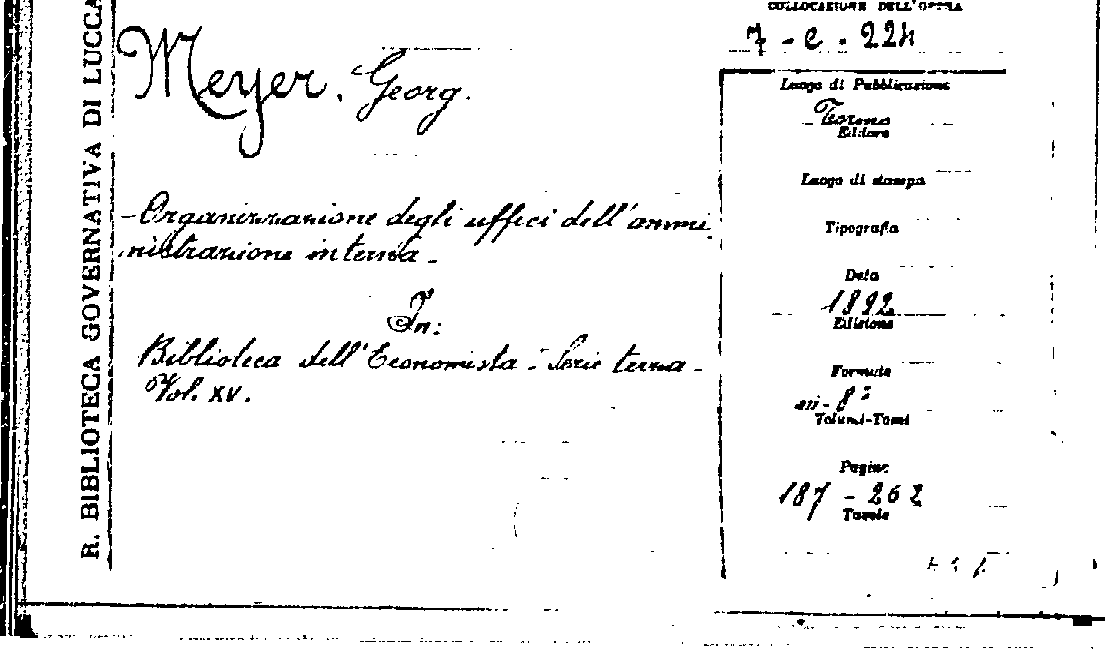 R. BIBLIOTECA GOVERNATIVA DI LUCCA
COLLOCAZIONE DELL'OPERA
7 - e - 224
Meyer, Georg.
Organizzazione degli uffici dell'ammi
nistrazione interna -
In:
Biblioteca dell'Economista - Serie terza -
Vol. XV.
Luogo di Pubblicazione
Torino
Editore
Luogo di stampa
Tipografia
Data
1892
Edizione
Formato
in-8º
Volumi-Tomi
Pagine
187 - 262
Tavole